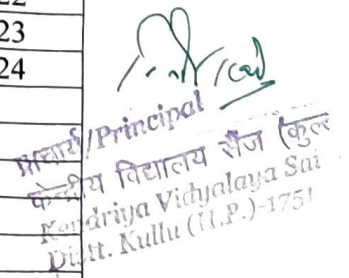 23
24
प्राचार्य/Principal
केन्द्रीय विद्यालय सैंज (कुल्
Kendriya Vidyalaya Sai
Distt. Kullu (H.P.)-1751